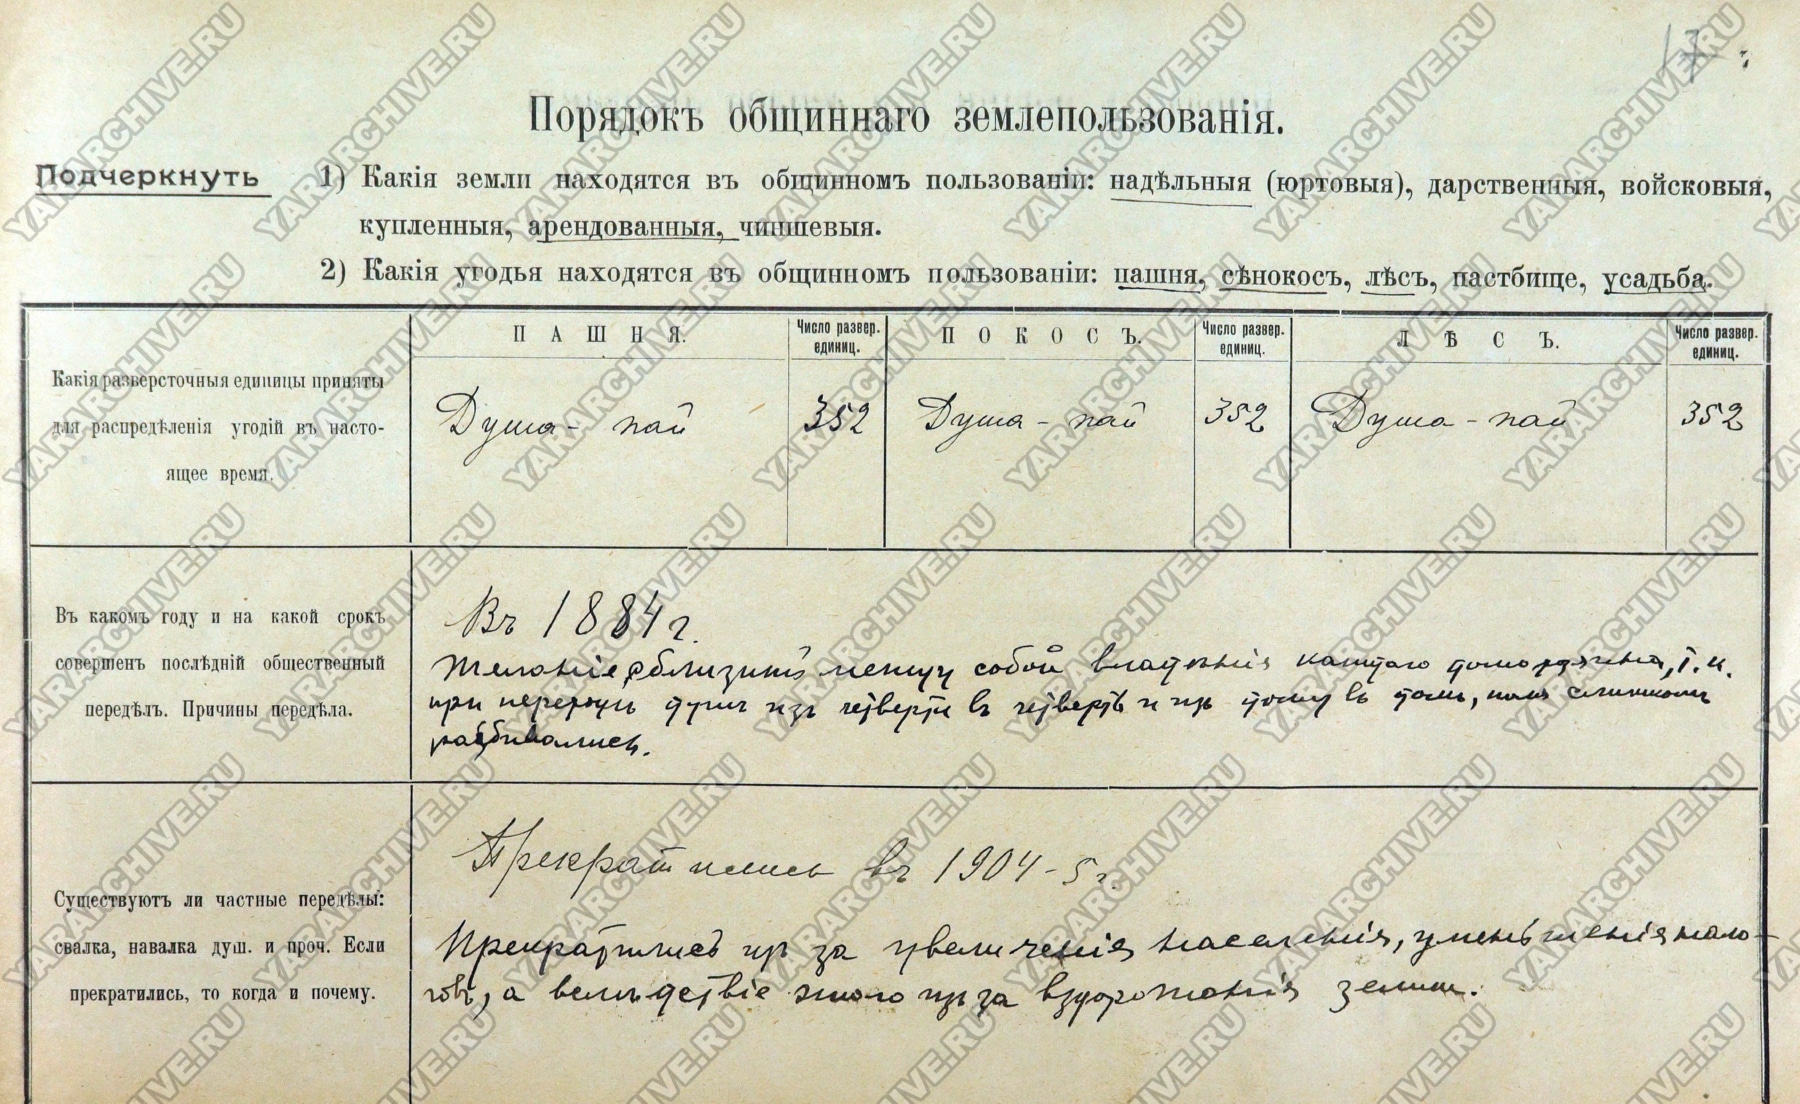 17
Порядокъ общиннаго землепользованія.
Подчеркнуть 1) Какія земли находятся въ общинномъ пользованіи: надѣльныя (юртовыя), дарственныя, войсковыя,
купленныя, арендованныя, чиншевыя.
2) Какія угодья находятся въ общинномъ пользованіи: пашня, сѣнокосъ, лѣсъ, пастбище, усадьба.
ПАШНЯ. Число развер. единиц. ПОКОСЪ. Число развер. единиц. ЛѢСЪ. Число развер. единиц.
Какія разверсточныя единицы приняты
для распредѣленія угодій въ насто-
ящее время.
Душа - пай 352 Душа - пай 352 Душа - пай 352
Въ какомъ году и на какой срокъ
совершенъ послѣдній общественный
передѣлъ. Причины передѣла.
Въ 1884 г.
Желаніе сблизить между собой владенія каждаго домохозяина, т. к.
при переходе душ изъ четверти въ четверть и изъ дому въ домъ, поля слишкомъ
разбивались.
Существуютъ ли частные передѣлы:
свалка, навалка душ. и проч. Если
прекратились, то когда и почему.
Прекратились въ 1904-5 г.
Прекратились из за увеличенія населенія, уменьшенія нало-
говъ, а вследствіе этого изъ за вздорожанія земли.
YARARCHIVE.RU